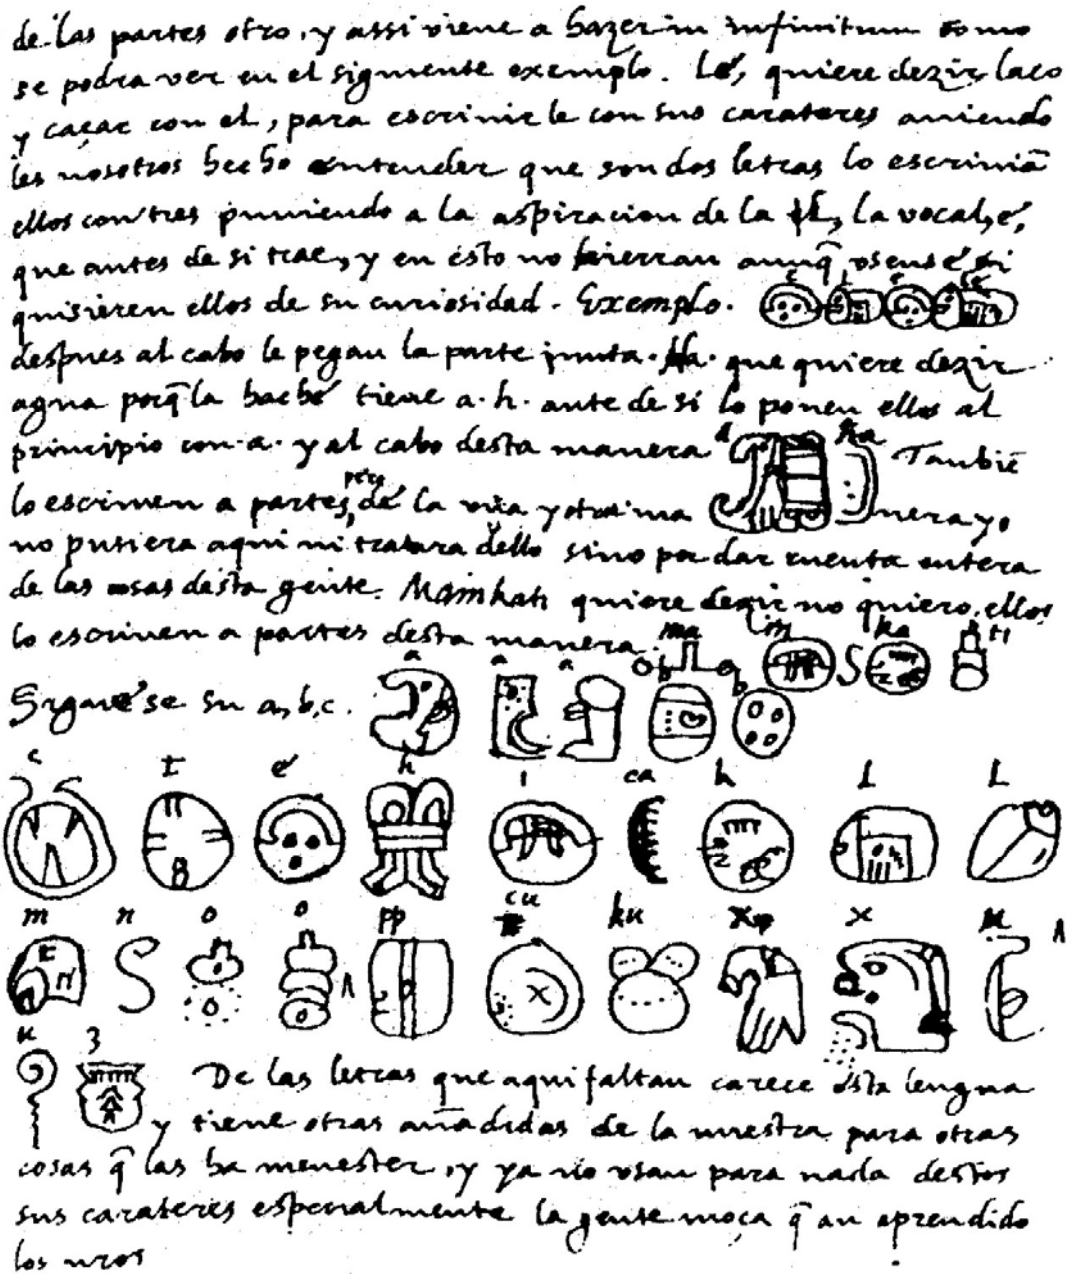 de las partes otro, y assi viene a hazer in infinitum como
se podra ver en el siguiente exemplo. Lé, quiere dezir laço
y caçar con el, para escrivirle con sus carateres aviendo
les nosotros hecho entender que son dos letras lo escrivian̄
ellos con tres puniendo a la aspiracion de la l, la vocal, é,
que antes de si trae, y en ésto no hierran aunq̄ usense é, si
quisieren ellos de su curiosidad. Exemplo. e L e Lé
despues al cabo le pegan la parte junta. Ha. que quiere dezir
agua porq̄ la haché tiene a. h. ante de si lo ponen ellos al
principio con. a. y al cabo desta manera a ha Tambiē
lo escriven a partes, pero de la una y otra ma nera yo
no pusiera aqui ni tratara dello sino por dar cuenta entera
de las cosas desta gente. Mainkati quiere dezir no quiero, ellos
lo escriven a partes desta manera. ma i n ka ti
Siguese su a, b, c. a a a b b
c t é h i ca k l l
m n o o pp cu ku x x u
u z De las letras que aqui faltan carece ésta lengua
y tiene otras añadidas de la nuestra para otras
cosas q̄ las ha menester, y ya no usan para nada destos
sus carateres especialmente la gente moça q̄ an aprendido
los nros